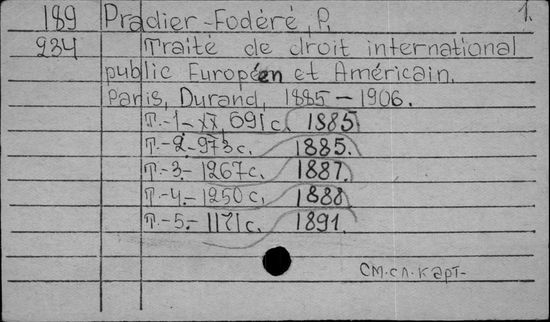 189 Pradier-Fodéré, P. 1.
234 Traité de droit international
public Européen et Américain.
Paris, Durand, 1885-1906.
Т.-1-XX, 691 с. 1885
Т.-2-973 с. 1885.
Т.-3.-1267 с. 1887.
Т.-4.-1250 с. 1888
Т.-5.-1171 с. 1891.
См.сл.карт-